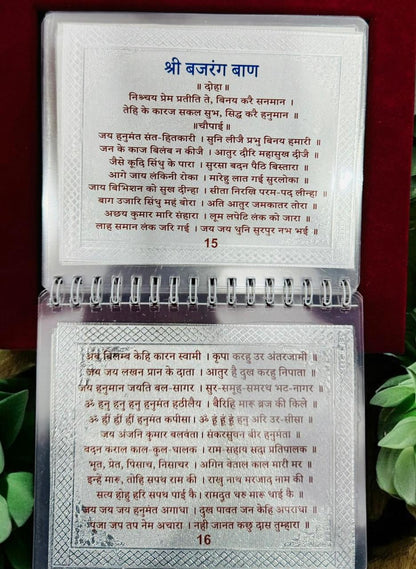 श्री बजरंग बाण
॥ दोहा॥
निश्चय प्रेम प्रतीति ते, बिनय करै सनमान ।
तेहि के कारज सकल सुभ, सिद्ध करै हनुमान ॥
॥चौपाई॥
जय हनुमंत संत-हितकारी । सुनि लीजै प्रभु बिनय हमारी ॥
जन के काज बिलंब न कीजै । आतुर दौरि महासुख दीजै ॥
जैसे कूदि सिंधु के पारा । सुरसा बदन पैठि बिस्तारा ॥
आगे जाय लंकिनी रोका । मारेहु लात गई सुरलोका ॥
जाय बिभिशन को सुख दीन्हा । सीता निरखि परम-पद लीन्हा ॥
बाग उजारि सिंधु महं बोरा । अति आतुर जमकातर तोरा ॥
अछय कुमार मारि संहारा । लूम लपेटि लंक को जारा ॥
लाह समान लंक जरि गई । जय जय धुनि सुरपुर नभ भई ॥
15
अब बिलम्ब केहि कारन स्वामी । कृपा करहु उर अंतरजामी ॥
जय जय लखन प्रान के दाता । आतुर है दुख करहु निपाता ॥
जय हनुमान जयति बल-सागर । सुर-समूह-समरथ भट-नागर ॥
ॐ हनु हनु हनु हनुमंत हठीलैय । बैरिहि मारू ब्रज की किले
ॐ हीं हीं हीं हनुमंत कपीसा । ॐ हूं हूं हूं हनु अरि उर-सीसा ॥
जय अंजनि कुमार बलवंता । संकरसुवन बीर हनुमंता ॥
बदन कराल काल-कुल-घालक । राम-सहाय सदा प्रतिपालक ॥
भूत, प्रेत, पिसाच, निसाचर । अगिन वेताल काल मारी मर ॥
इन्हें मारू, तोहि सपथ राम की । राखु नाथ मरजाद नाम की ॥
सत्य होहु हरि सपथ पाई कै । रामदुत धरु मारू धाई कै ॥
जय जय जय हनुमंत अगाधा । दुख पावत जन केहि अपराधा ॥
पूजा जप तप नेम अचारा । नही जानत कछु दास तुम्हारा ॥
16